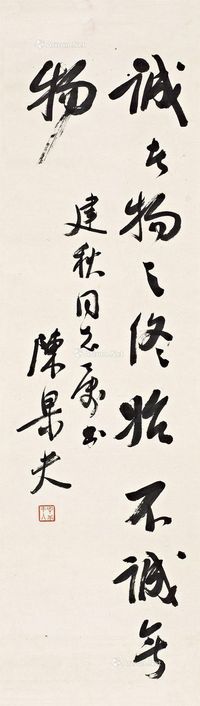 誠者物之終始不誠無
物
建秋同志屬書
陳果夫